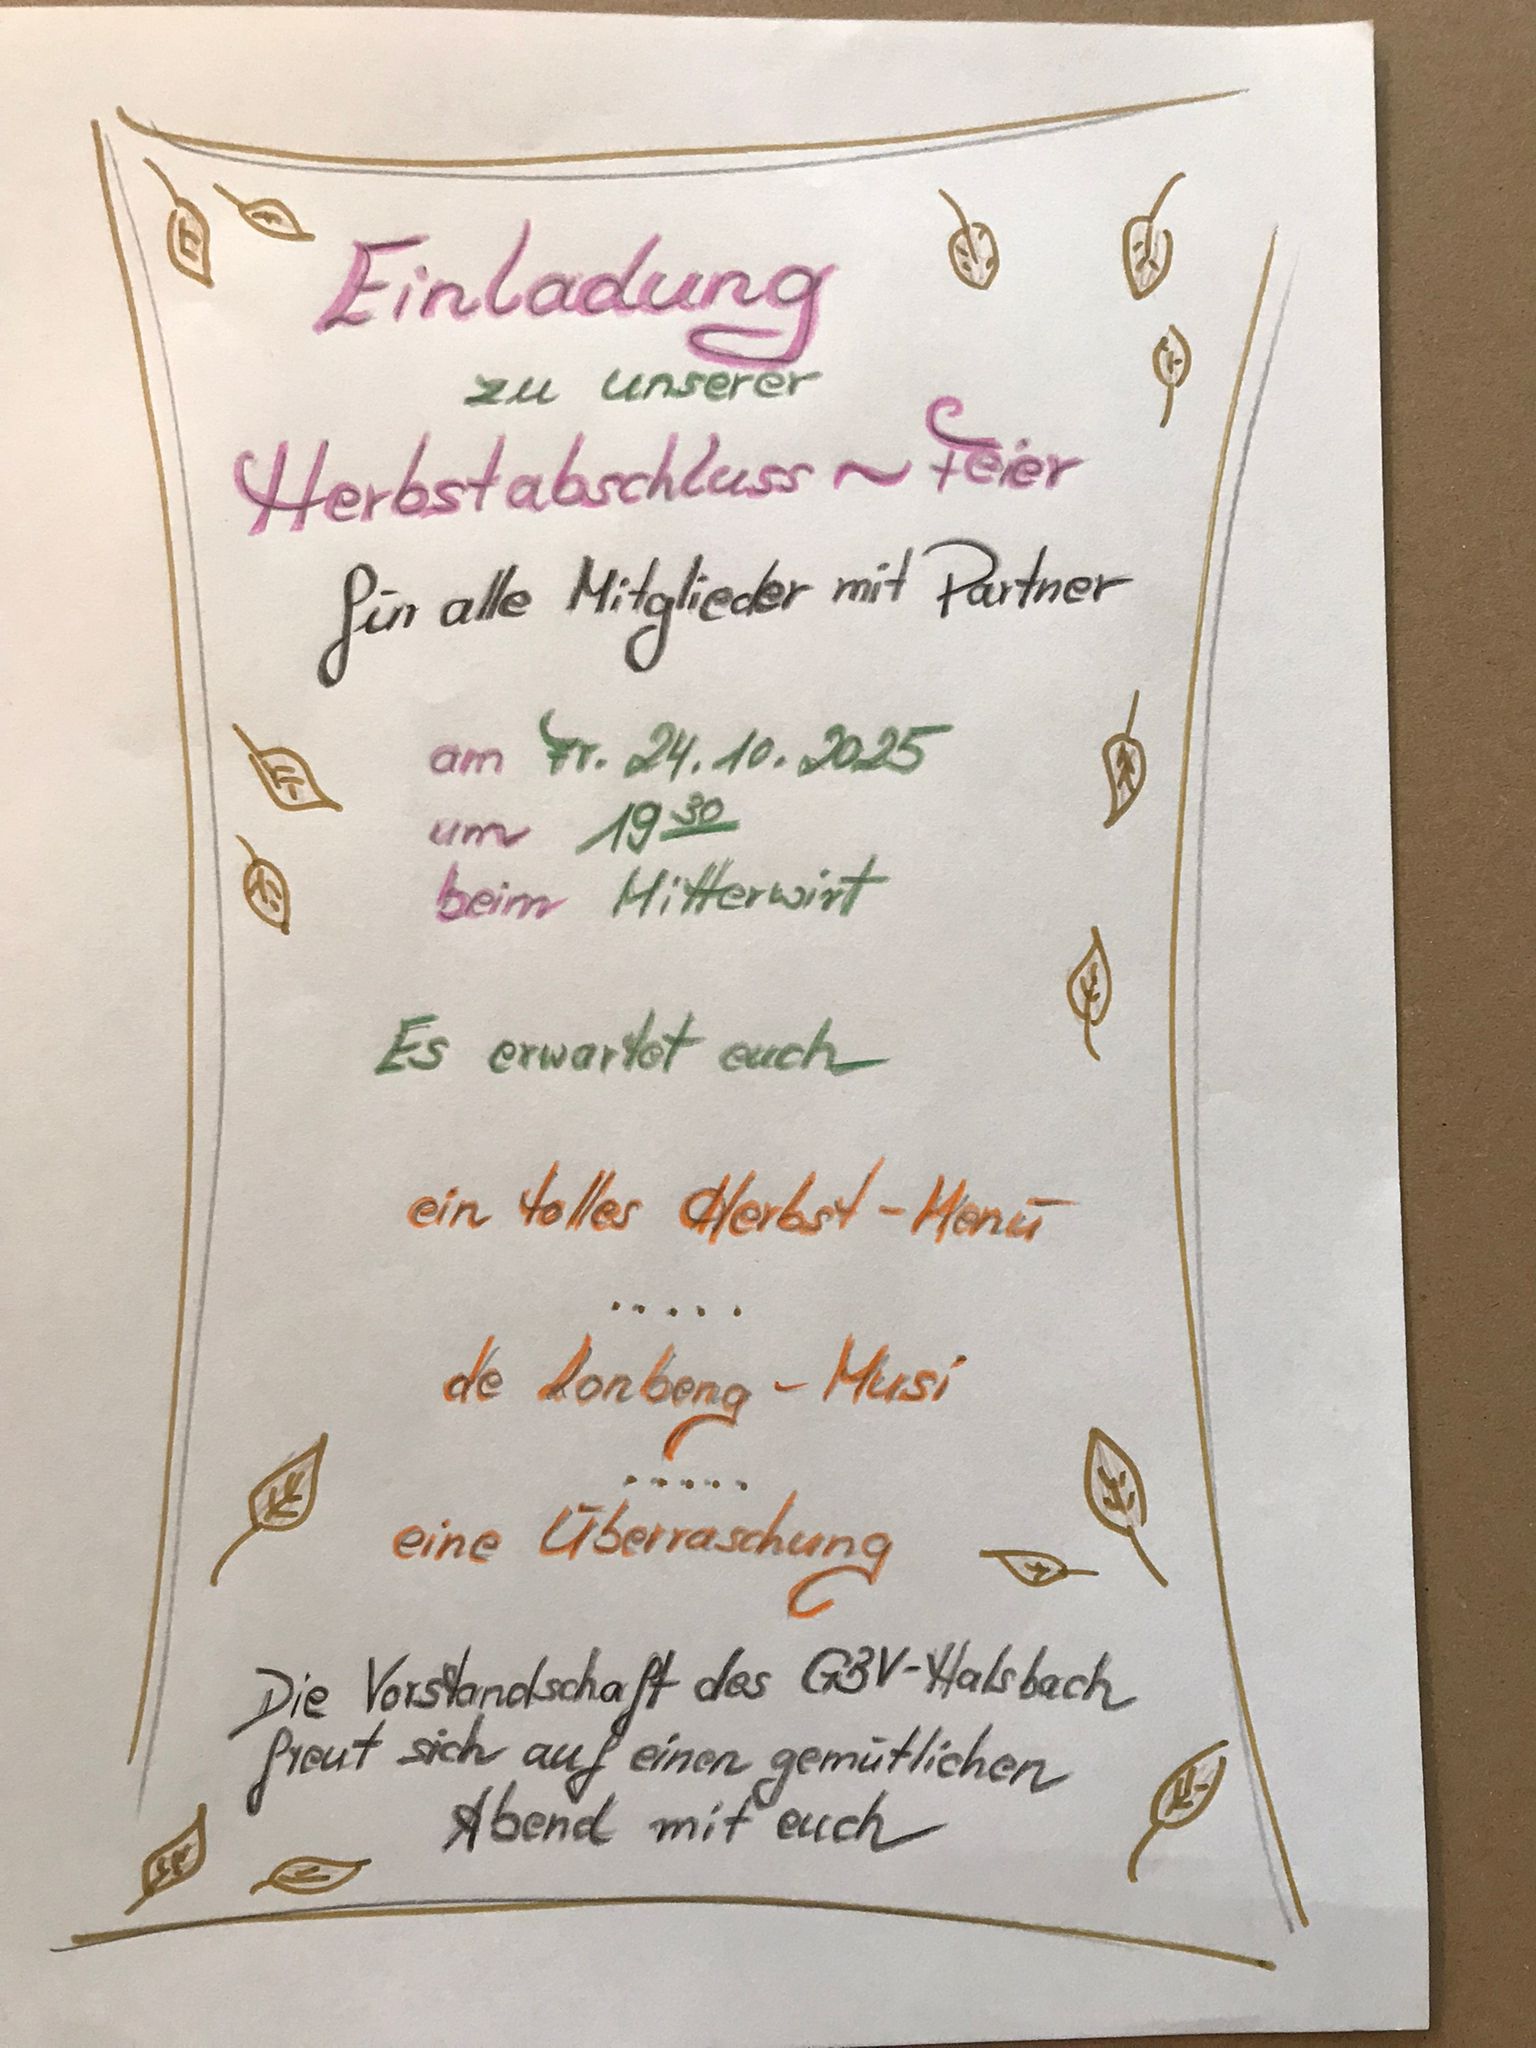 Einladung
zu unserer
Herbstabschluss ~ Feier
für alle Mitglieder mit Partner
am Fr. 24.10.2025
um 19 30
beim Mitterwirt
Es erwartet euch
ein tolles Herbst - Menü
.....
de - Musi
.....
eine Überraschung
Die Vorstandschaft des GBV-Halsbach
freut sich auf einen gemütlichen
Abend mit euch